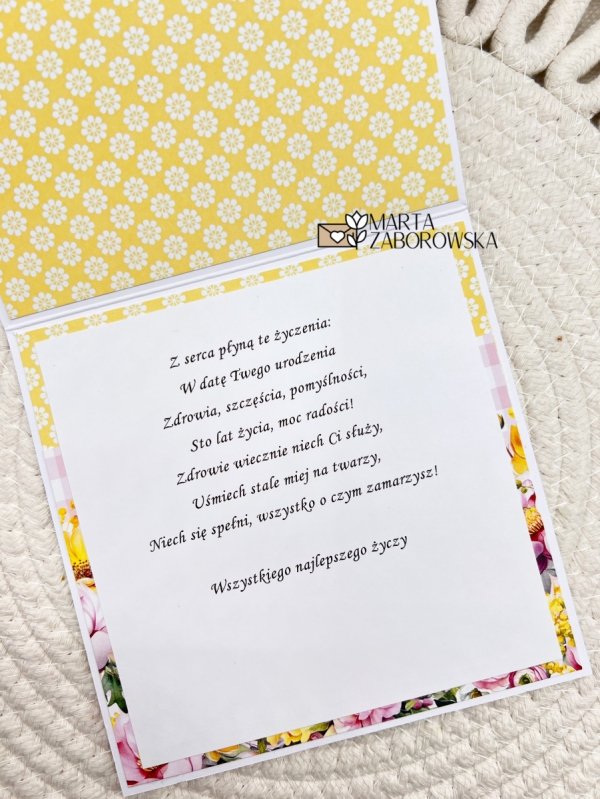 MARTA
ZABOROWSKA
Z serca płyną te życzenia:
W datę Twego urodzenia
Zdrowia, szczęścia, pomyślności,
Sto lat życia, moc radości!
Zdrowie wiecznie niech Ci służy,
Uśmiech stale miej na twarzy,
Niech się spełni, wszystko o czym zamarzysz!
Wszystkiego najlepszego życzy